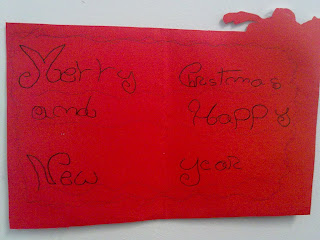 Merry Cristmas
and Happy
New year